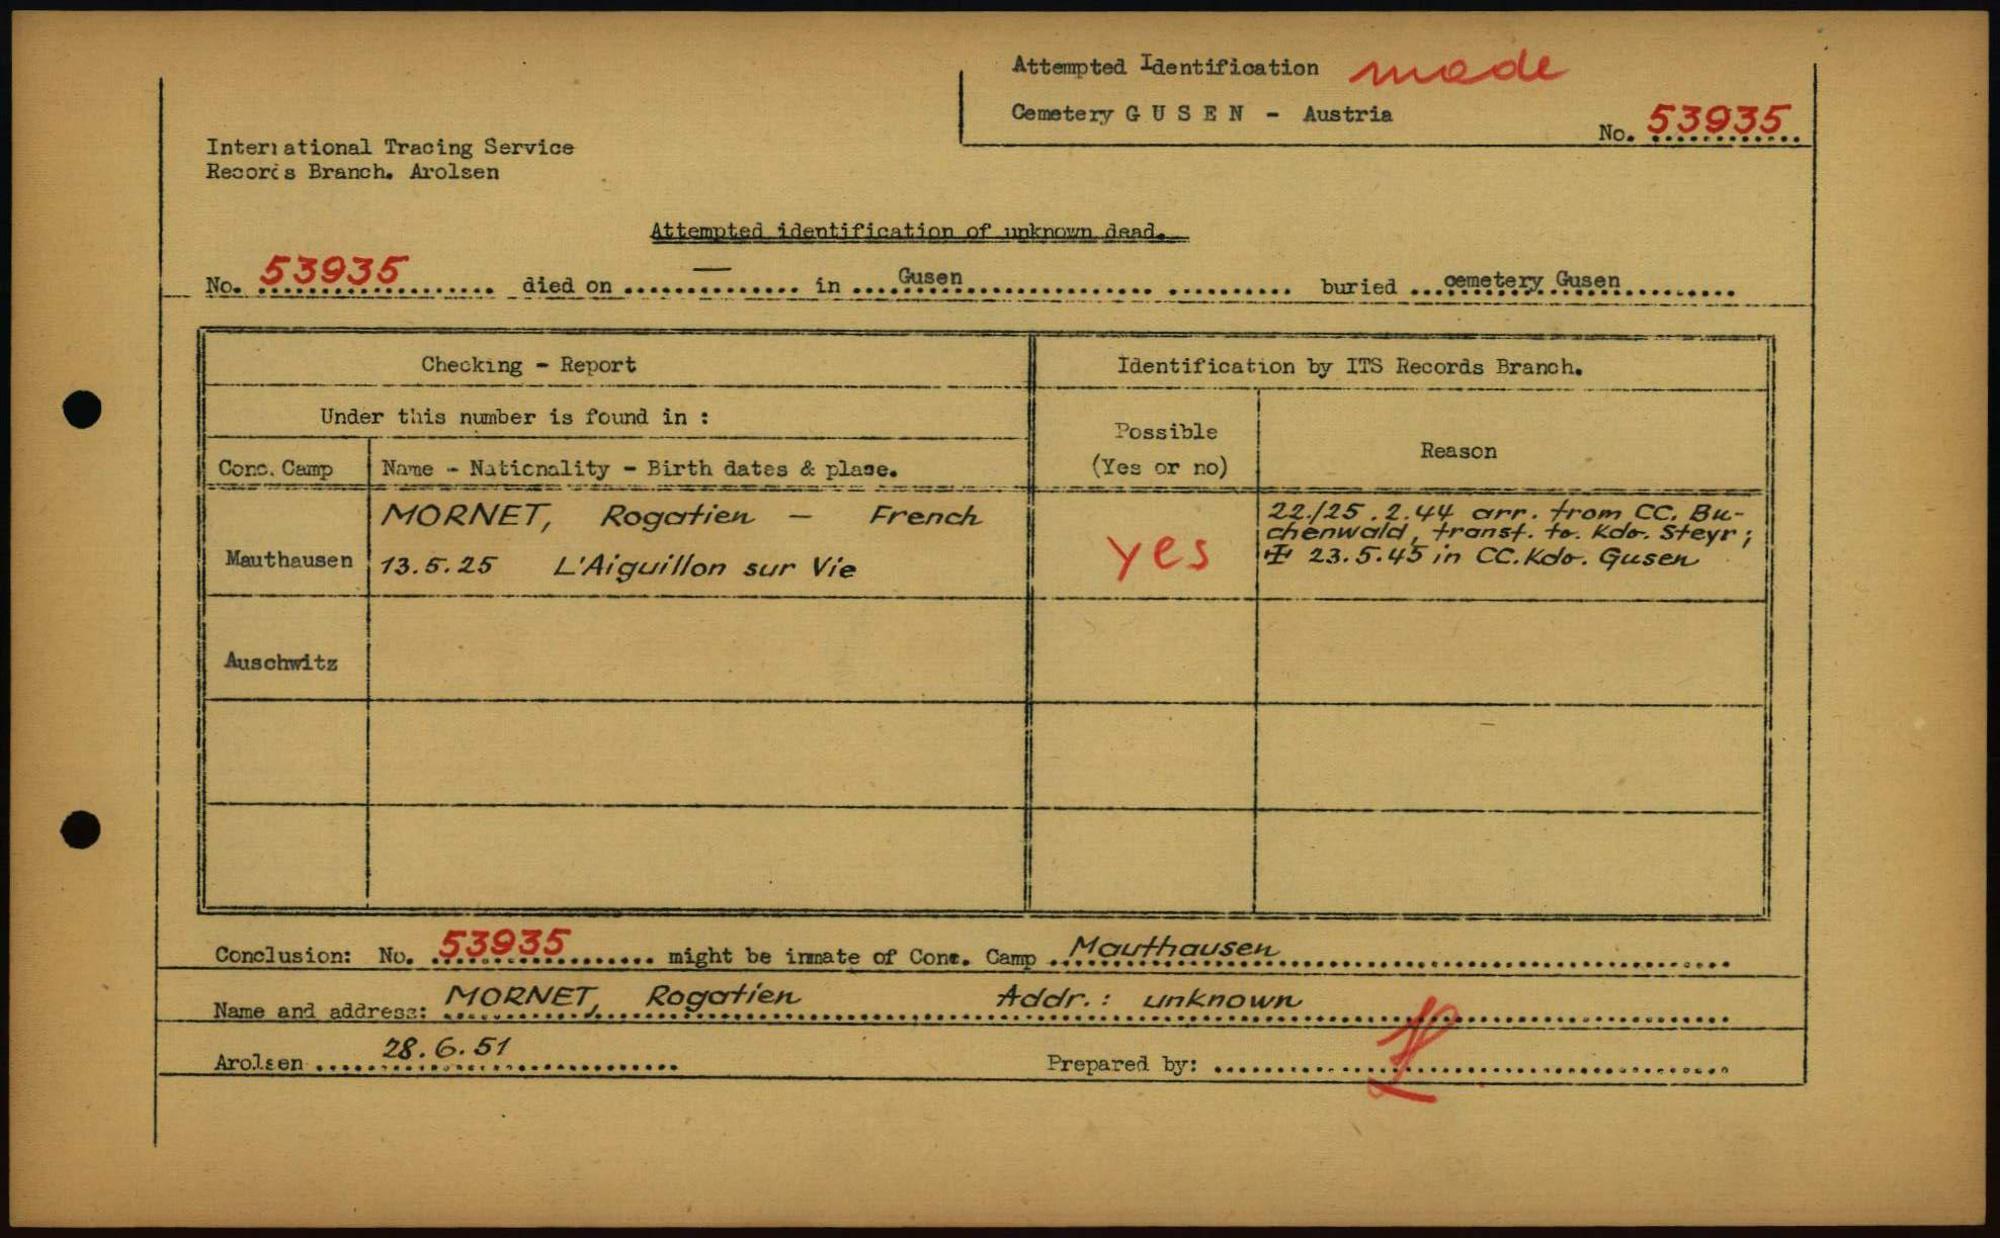 Attempted Identification made
Cemetery G U S E N - Austria
No. 53935
International Tracing Service
Records Branch. Arolsen
Attempted identification of unknown dead.
No. 53935 died on — in Gusen buried cemetery Gusen
Checking - Report
Identification by ITS Records Branch.
Under this number is found in :
Possible
(Yes or no)
Reason
Conc. Camp
Name - Nationality - Birth dates & place.
Mauthausen
MORNET, Rogatien — French
13.5.25 L'Aiguillon sur Vie
yes
22./25.2.44 arr. from CC. Bu-
chenwald, transf. to. Kdo. Steyr;
✠ 23.5.45 in CC. Kdo. Gusen
Auschwitz
Conclusion: No. 53935 might be inmate of Conc. Camp Mauthausen
Name and address: MORNET, Rogatien Addr.: unknown
Arolsen 28.6.51
Prepared by: